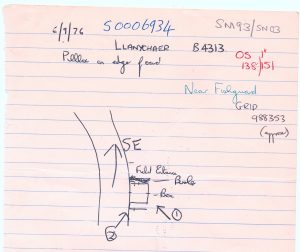 6/9/76 SO006934 SM93/SN03
LLANYCHAER B4313
Pillbox on edge of road
OS 1"
138/151
Near Fishguard
GRID
988353
(approx)
SE
Field Entrance
Box
② ①